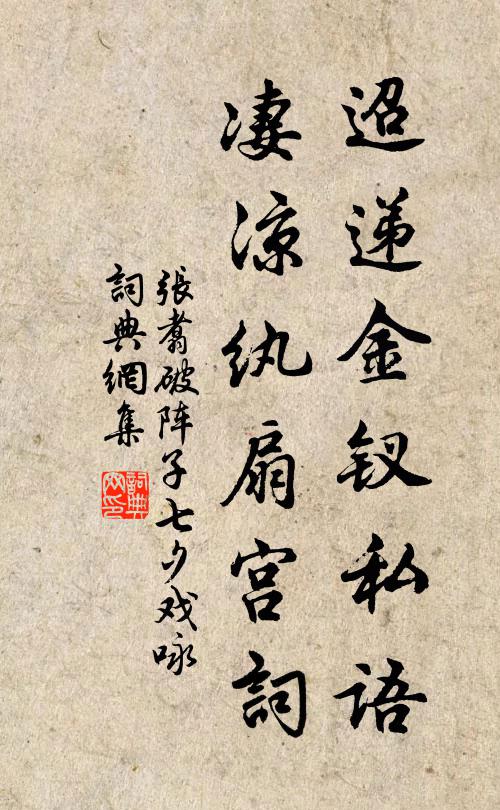 迢递金钗私语
凄凉纨扇宫詞
張翥破阵子七夕戏咏
詞典網集
詞典網印